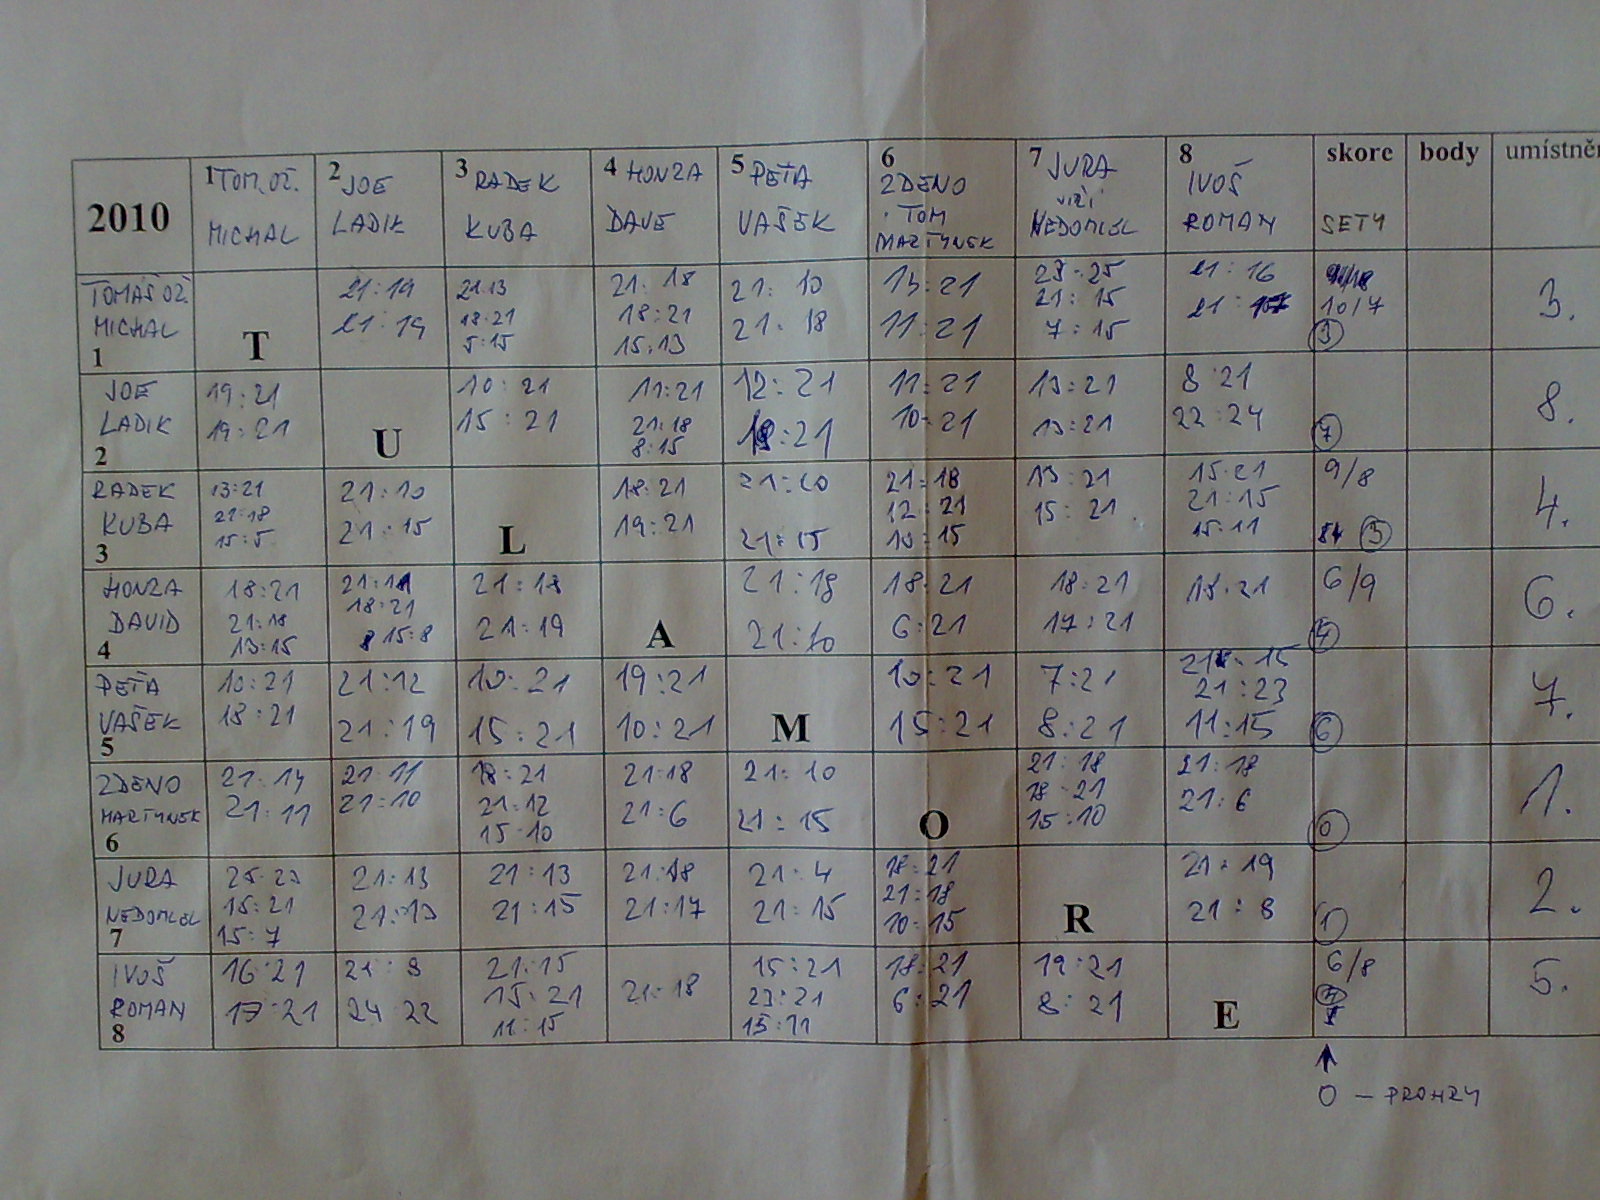 2010
1 TOM. OŽ. MICHAL
2 JOE LADIK
3 RADEK KUBA
4 HONZA DAVE
5 PEŤA VAŠEK
6 ZDENO TOM MARTYNEK
7 JURA NEDOMLEL
8 IVOŠ ROMAN
skore SETY
body
umístněn
TOMÁŠ OŽ. MICHAL 1
T
21:19 21:19
21:13 18:21 5:15
21:18 18:21 15:13
21:10 21:18
14:21 11:21
23:25 21:15 7:15
21:16 21:
10/7 3
3.
JOE LADIK 2
19:21 19:21
U
10:21 15:21
11:21 21:18 8:15
12:21 19:21
11:21 10:21
13:21 13:21
8:21 22:24
7
8.
RADEK KUBA 3
13:21 21:18 15:5
21:10 21:15
L
18:21 19:21
21:10 21:15
21:18 12:21 10:15
13:21 15:21
15:21 21:15 15:11
9/8 3
4.
HONZA DAVID 4
18:21 21:18 13:15
21:11 18:21 15:8
21:18 21:19
A
21:19 21:10
18:21 6:21
18:21 17:21
18:21
6/9 4
6.
PEŤA VAŠEK 5
10:21 18:21
21:12 21:19
10:21 15:21
19:21 10:21
M
10:21 15:21
7:21 8:21
21:15 21:23 11:15
6
7.
ZDENO MARTYNEK 6
21:14 21:11
21:11 21:10
18:21 21:12 15:10
21:18 21:6
21:10 21:15
O
21:18 18:21 15:10
21:18 21:6
0
1.
JURA NEDOMLEL 7
25:23 15:21 15:7
21:13 21:13
21:13 21:15
21:18 21:17
21:4 21:15
18:21 21:18 10:15
R
21:19 21:8
1
2.
IVOŠ ROMAN 8
16:21 17:21
21:8 24:22
21:15 15:21 11:15
21:18
15:21 23:21 15:11
18:21 6:21
19:21 8:21
E
6/8
5.
O – PROHRY